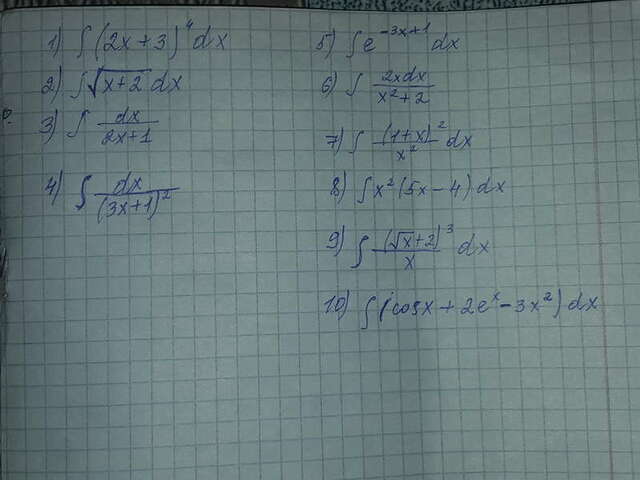 1) ∫ (2x+3)⁴ dx
2) ∫ √(x+2) dx
3) ∫ dx/(2x+1)
4) ∫ dx/(3x+1)²
5) ∫ e^(-3x+1) dx
6) ∫ 2xdx/(x²+2)
7) ∫ (1+x)²/x² dx
8) ∫ x²(5x-4) dx
9) ∫ (√x+2)³/x dx
10) ∫ (cosx+2eˣ-3x²) dx